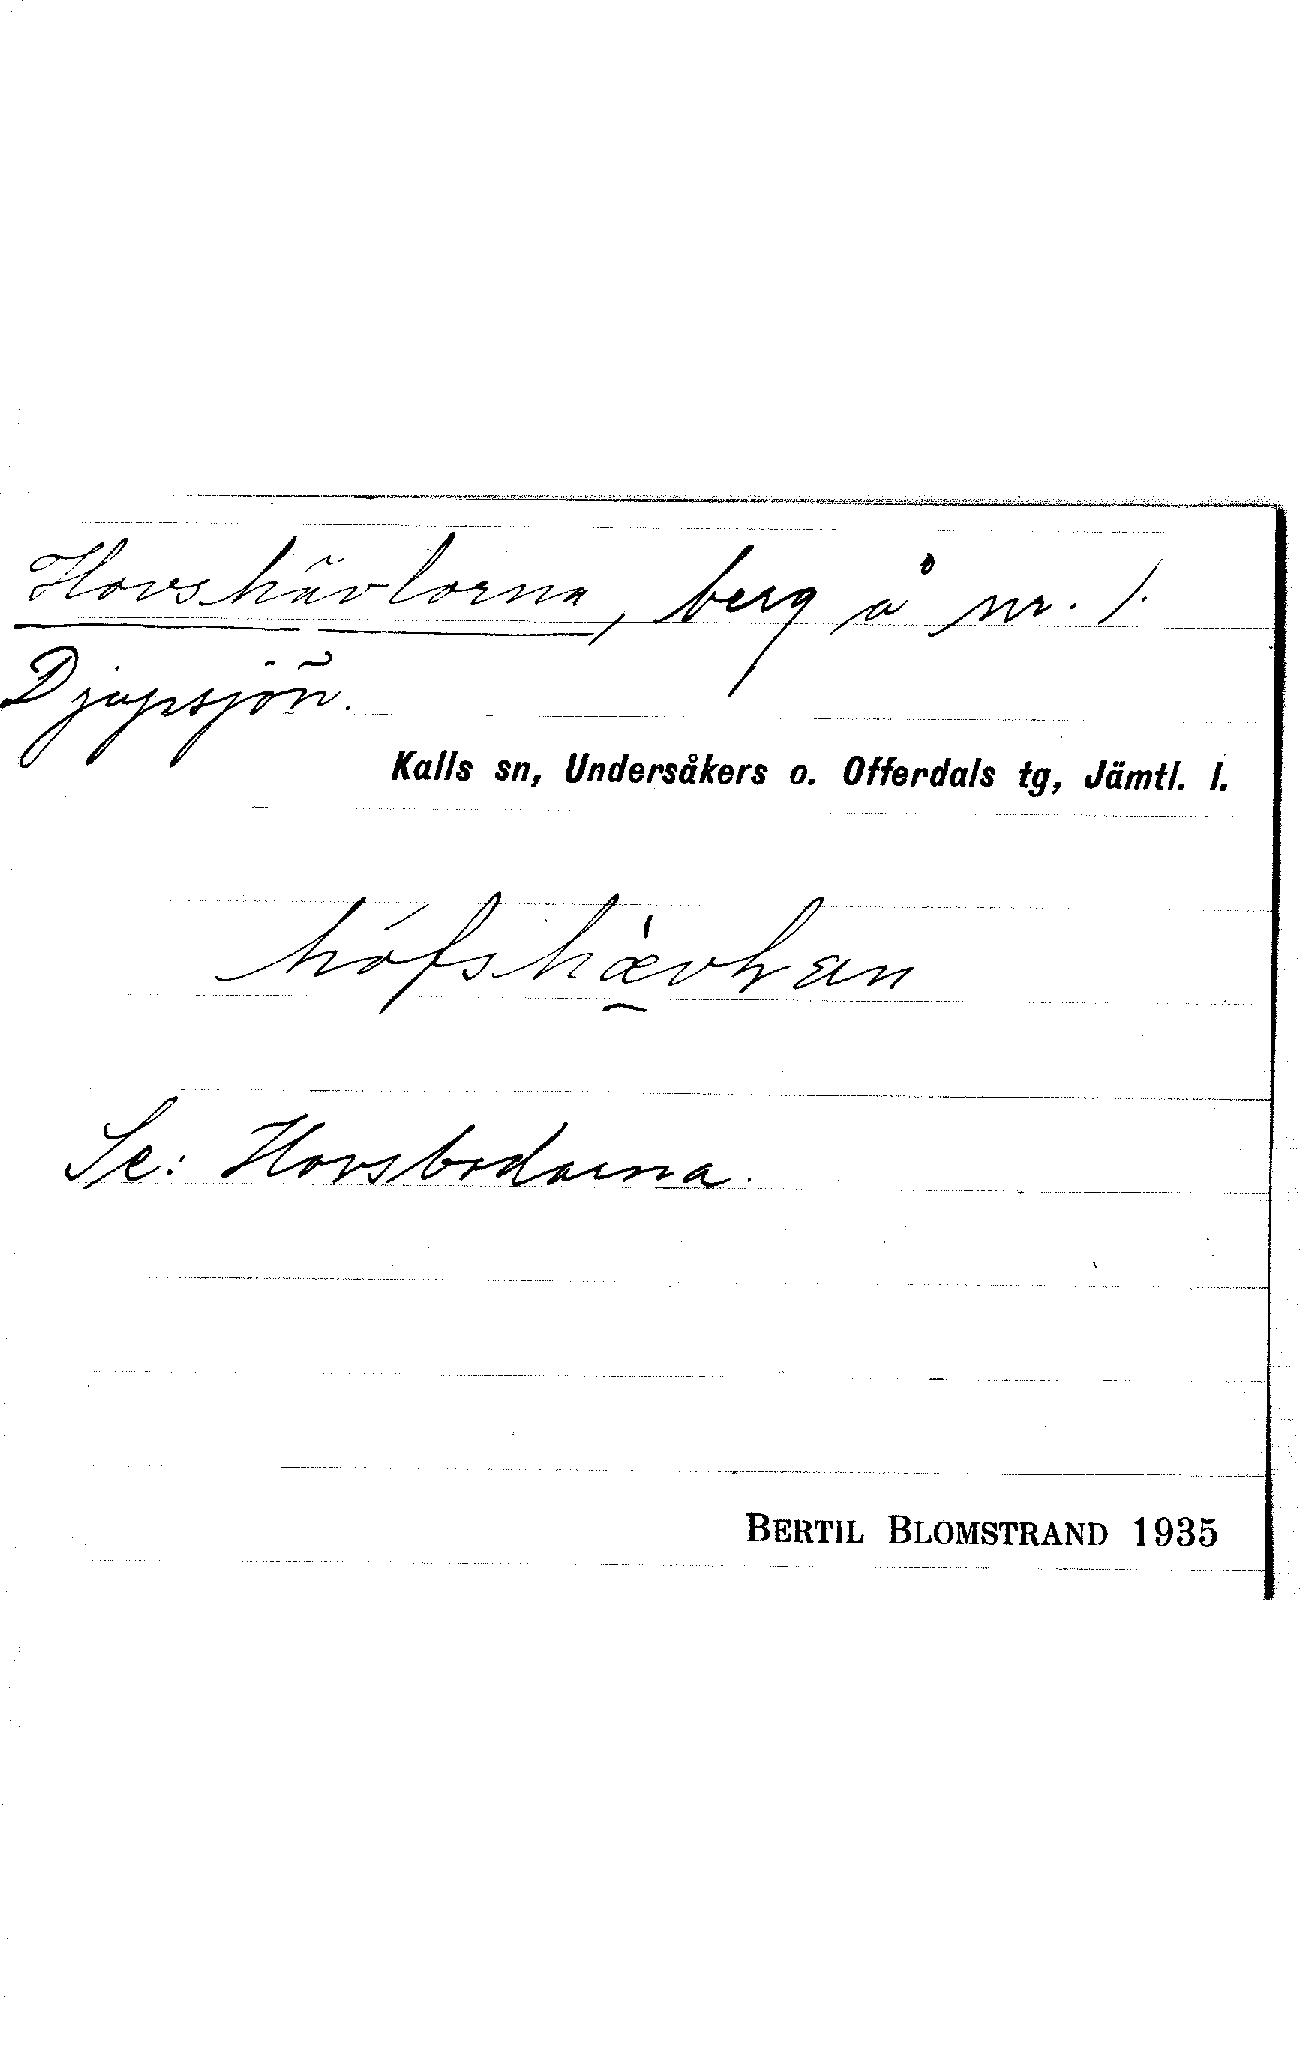 Hovshävlorna, berg å nr. 1.
Djupsjön.
Kalls sn, Undersåkers o. Offerdals tg, Jämtl. l.
Se: Hovsbodarna.
BERTIL BLOMSTRAND 1935